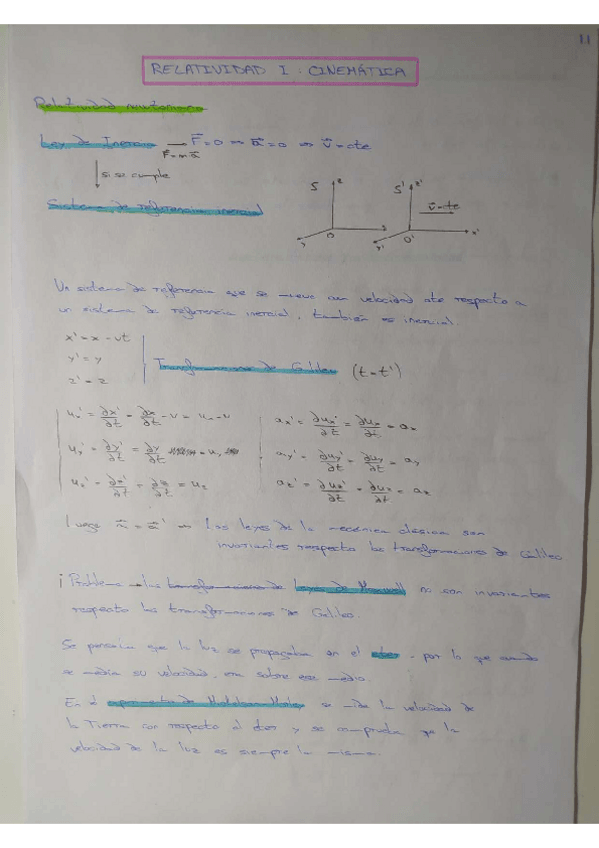 1.1
RELATIVIDAD I. CINEMÁTICA
Relatividad newtoniana
Ley de Inercia → F⃗=0 ⇒ a⃗=0 ⇒ v⃗=cte
F⃗=m a⃗
si se cumple
Sistema de referencia inercial
S z O y
S' z' v⃗=cte x' y' O'
Un sistema de referencia que se mueve con velocidad cte respecto a
un sistema de referencia inercial, también es inercial.
x'=x-vt
y'=y
z'=z
Transformaciones de Galileo (t=t')
ux'=∂x'/∂t=∂x/∂t-v=ux-v
uy'=∂y'/∂t=∂y/∂t=uy
uz'=∂z'/∂t=∂z/∂t=uz
ax'=∂ux'/∂t=∂ux/∂t=ax
ay'=∂uy'/∂t=∂uy/∂t=ay
az'=∂uz'/∂t=∂uz/∂t=az
Luego a⃗=a⃗' ⇒ Las leyes de la mecánica clásica son
invariantes respecto las transformaciones de Galileo
¡Problema → las transformaciones de leyes de Maxwell no son invariantes
respecto las transformaciones de Galileo.
Se pensaba que la luz se propagaba en el éter, por lo que cuando
se medía su velocidad, era sobre ese medio.
En el experimento de Michelson-Morley se mide la velocidad de
la Tierra con respecto al éter y se comprueba que la
velocidad de la luz es siempre la misma.